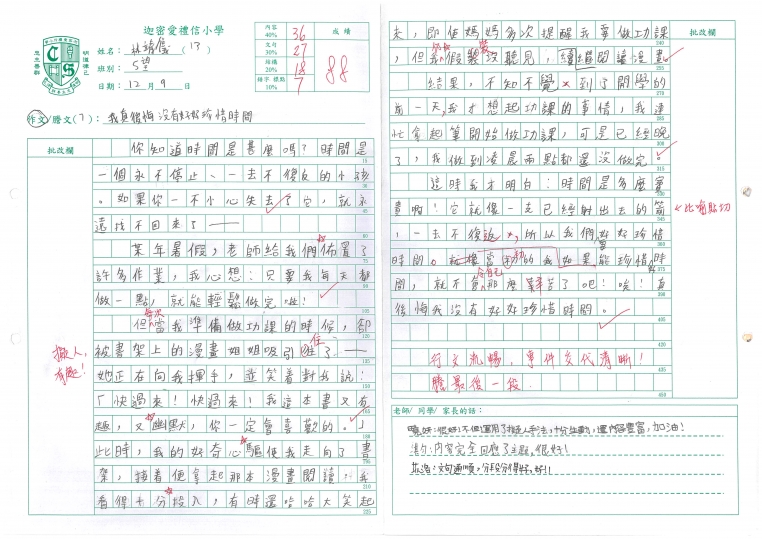 迦密愛禮信小學
姓名：林靖儀（13）
班別：5望
日期：12月9日
內容 40% 36
文句 30% 27
結構 20% 18
錯字、標點 10% 7
成績
88
作文/謄文(7)：我真後悔沒有好好珍惜時間
批改欄
你知道時間是甚麼嗎？時間是
一個永不停止、一去不復返的小孩
。如果你一不小心失去了它，就永
遠找不回來了——
某年暑假，老師給我們佈置了
許多作業，我心想：只要我每天都
做一點，就能輕鬆做完啦！
每次
但當我準備做功課的時候，卻
被書架上的漫畫姐姐吸引住了——
擬人，有趣！
她正在向我揮手，並笑着對我說：
「快過來！快過來！我這本書又有
趣，又幽默，你一定會喜歡的。」
此時，我的好奇心驅使我走向了書
架，接着便拿起那本漫畫閱讀：我
看得十分投入，有時還哈哈大笑起
批改欄
來，即使媽媽多次提醒我要做功課
，但我假裝沒聽見，繼續閱讀漫畫。
結果，不知不覺，到了開學的
前一天，我才想起功課的事情，我連
忙拿起筆開始做功課，可是已經晚
了，我做到凌晨兩點都還沒做完。
這時我才明白：時間是多麼寶
貴啊！它就像一支已經射出去的箭
比喻貼切
，一去不復返，所以我們要好好珍惜
時間。
如果能珍惜時
間，就不會那麼辛苦了吧！唉！真
後悔我沒有好好珍惜時間。
行文流暢，事件交代清晰！
謄最後一段．
老師/ 同學/ 家長的話：
很好！不但運用了擬人手法，十分生動，還內容豐富，加油！
內容完全回應了主題，很好！
文句通順，分段分得好，好！！